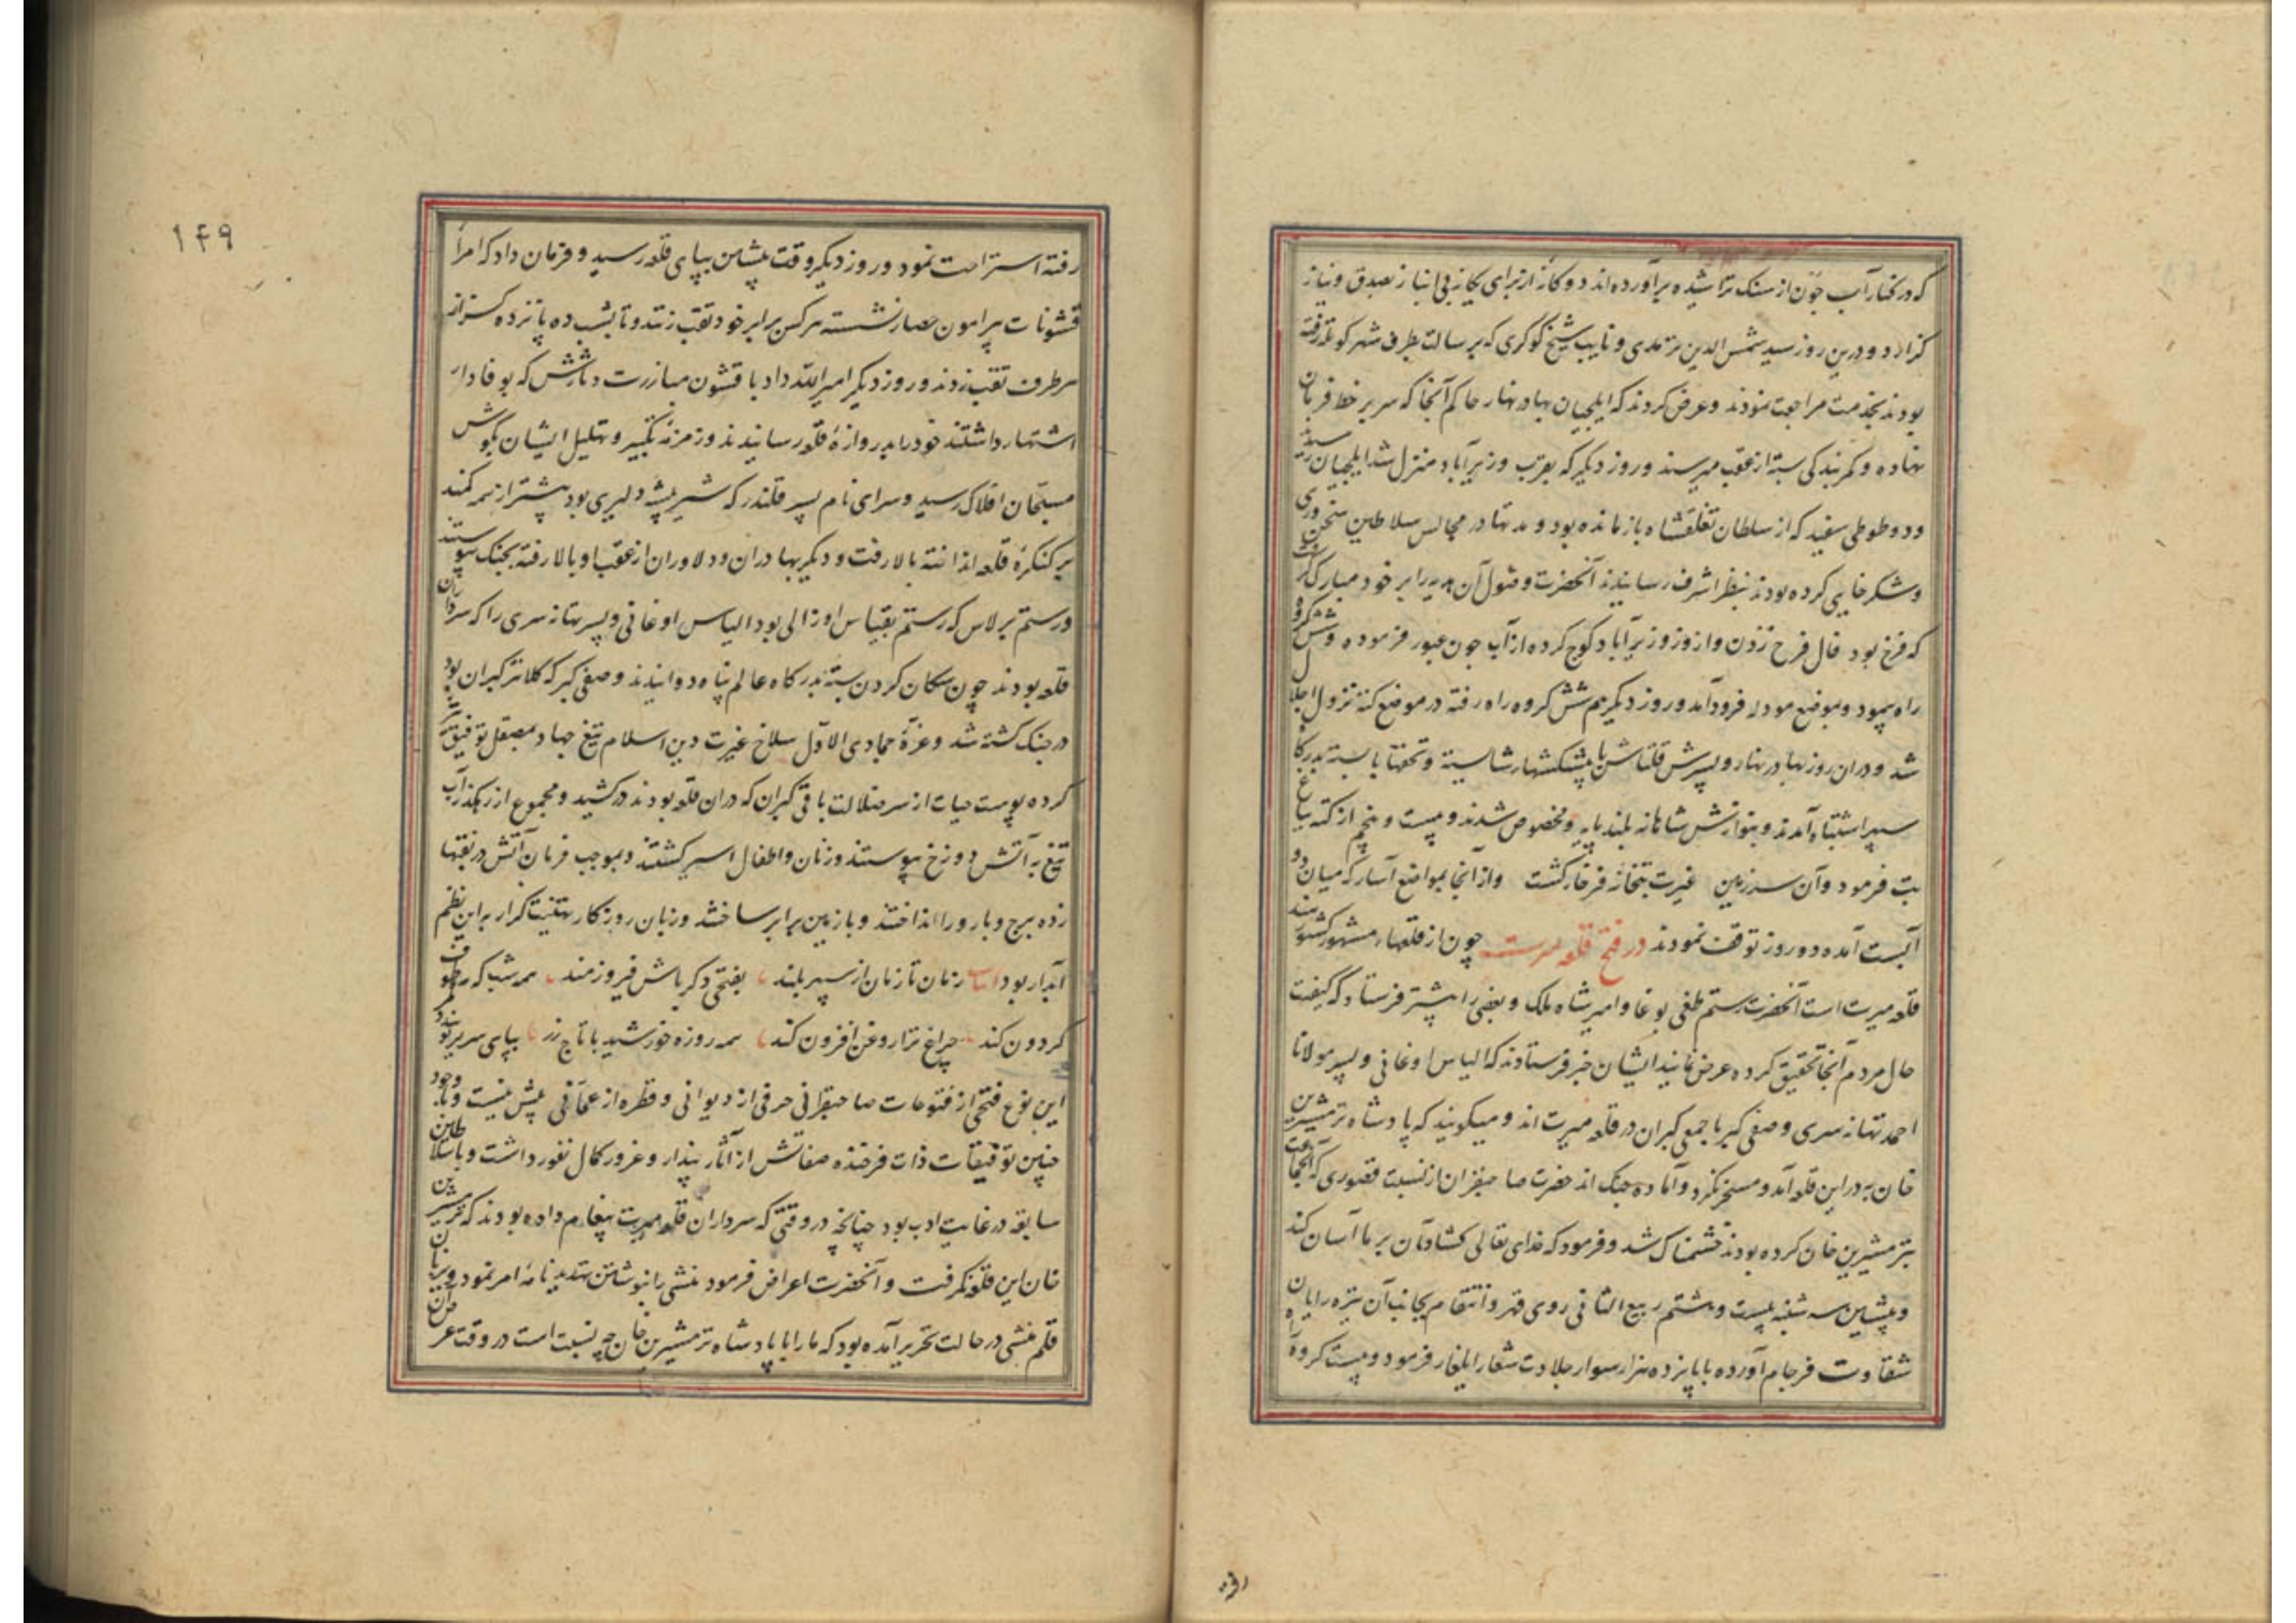 که در کنار آب جون از سنک تراشیده برآورده‌اند دوکانه از برای یکانه بی انباز بصدق و نیاز
کزارد و درین روز سید شمس الدین ترمدی و نایب شیخ کوکری که برسالت بطرف شهر کوتله رفته
بودند بخدمت مراجعت نمودند و عرض کردند که ایلچیان بهادر نهار حاکم آنجا که سر بر خط فرمان
نهاده و کمر بندکی بسته از عقب میرسند و روز دیکر که بقرب وزیرآباد منزل شد ایلچیان رسیدند
و دو طوطی سفید که از سلطان تغلقشاه بازمانده بود و مدتها در مجالس سلاطین سخن وری
و شکرخایی کرده بودند بنظر اشرف رسانیدند آنحضرت وصول آن هدیه را بر خود مبارک کرفت
که فرخ بود فال فرخ زدن و از وزیرآباد کوچ کرده از آب جون عبور فرموده و شش کروه
راه پیمود و بموضع مودله فرودآمد و روز دیکر هم شش کروه راه رفته در موضع کته نزول اجلال
شد و دران روز بهادر نهار و پسرش قلتاش با پیشکشهاء شایسته و تحفهاء بایسته بدرکاه
سپهر اشتباه آمدند و بنوازش شاهانه بلند پایه و مخصوص شدند و بیست و پنجم از کته بباغ
بت فرمود و آن سرزمین غیرت بتخانه فرخار کشت و از آنجا بمواضع آسار که میان دو
آبست آمده دو روز توقف نمودند در فتح قلعه میرت چون از قلعهاء مشهور کشور هند
قلعه میرت است آنحضرت رستم طغی بوغا و امیر شاه ملک و بعضی را پیشتر فرستاد که کیفیت
حال مردم آنجا تحقیق کرده عرض نمایند ایشان خبر فرستادند که الیاس اوغانی و پسر مولانا
احمد تهانه سری و صفی کبر با جمعی کبران در قلعه میرت اند و میکویند که پادشاه ترمشیرین
خان بدر این قلعه آمد و مسخر نکرد و آماده جنک اند حضرت صاحبقران از نسبت قصوری که آنجماعت
بترمشیرین خان کرده بودند خشمناک شد و فرمود که خدای تعالی کشاد آن بر ما آسان کند
و پیشین سه شنبه بیست و هشتم ربیع الثانی روی قهر و انتقام بجانب آن تیره رایان
شقاوت فرجام آورده با پانزده هزار سوار جلادت شعار ایلغار فرمود و بیست کروه راه
رفته
۱۴۹
رفته استراحت نمود و روز دیکر وقت پیشین بپای قلعه رسید و فرمان داد که امرا
قشونات پیرامون حصار نشسته هر کس برابر خود نقب زنند و تا بشب ده پانزده کز از
هر طرف نقب زدند و روز دیکر امیر الله داد با قشون مبارزت دثارش که بوفادار
اشتهار داشتند خود را بدروازهٔ قلعه رسانیدند و زمزمهٔ تکبیر و تهلیل ایشان بکوش
مسبّحان افلاک رسید و سرای نام پسر قلندر که شیر بیشه دلیری بود پیشتر از همه کمند
بر کنکرهٔ قلعه انداخته بالا رفت و دیکر بهادران و دلاوران از عقب او بالا رفته بجنک پیوستند
و رستم برلاس که رستم بقیاس او زالی بود الیاس اوغانی و پسر تهانه سری را که سرداران
قلعه بودند چون سکان کردن بسته بدرکاه عالم پناه دوانیدند و صفی کبر که کلانتر کبران بود
در جنک کشته شد و غرّهٔ جمادی الاوّل سلاخ غیرت دین اسلام تیغ جهاد بمصقل توفیق تیز
کرده پوست حیات از سر ضلالت باقی کبران که دران قلعه بودند درکشید و مجموع از رهکذر آب
تیغ به آتش دوزخ پیوستند و زنان و اطفال اسیر کشتند و بموجب فرمان آتش در نقبها
زده برج و بارو را انداختند و با زمین برابر ساختند و زبان روزکار تهنیت کزار به این نظم
آبدار بود ابیات زمان تا زمان از سپهر بلند بفتحی دکر باش فیروزمند همه شب که مه طوف
کردون کند چراغ ترا روغن افزون کند همه روزه خورشید با تاج زر بپای سریر تو بندد کمر
این نوع فتحی از فتوحات صاحبقرانی حرفی از دیوانی و قطره از عمّانی بیش نیست و با وجود
چنین توفیقات ذات فرخنده صفاتش از آثار پندار و غرور کمال نفور داشت و با سلاطین
سابقه در غایت ادب بود چنانچه در وقتی که سرداران قلعه میرت پیغام داده بودند که ترمشیرین
خان این قلعه نکرفت و آنحضرت اعراض فرمود منشی را بنوشتن تهدید نامه امر نمود و بر زبان
قلم منشی در حالت تحریر آمده بود که ما را با پادشاه ترمشیرین خان چه نسبت است در وقت عرض آن